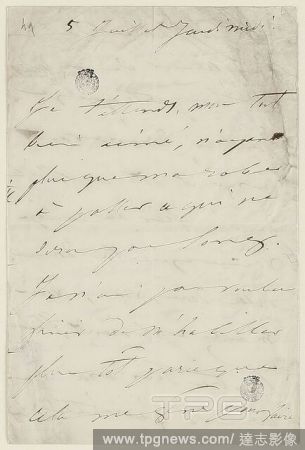 5 Juillet Jeudi midi.
Je t'attends, mon tout
bien aimé, n'ayant
plus que ma robe
à passer ce qui ne
sera pas long.
Je n'ai pas voulu
finir de m'habiller
plus tôt parce que
cela me gêne pour faire
TPG
www.tpgnews.com/達志影像